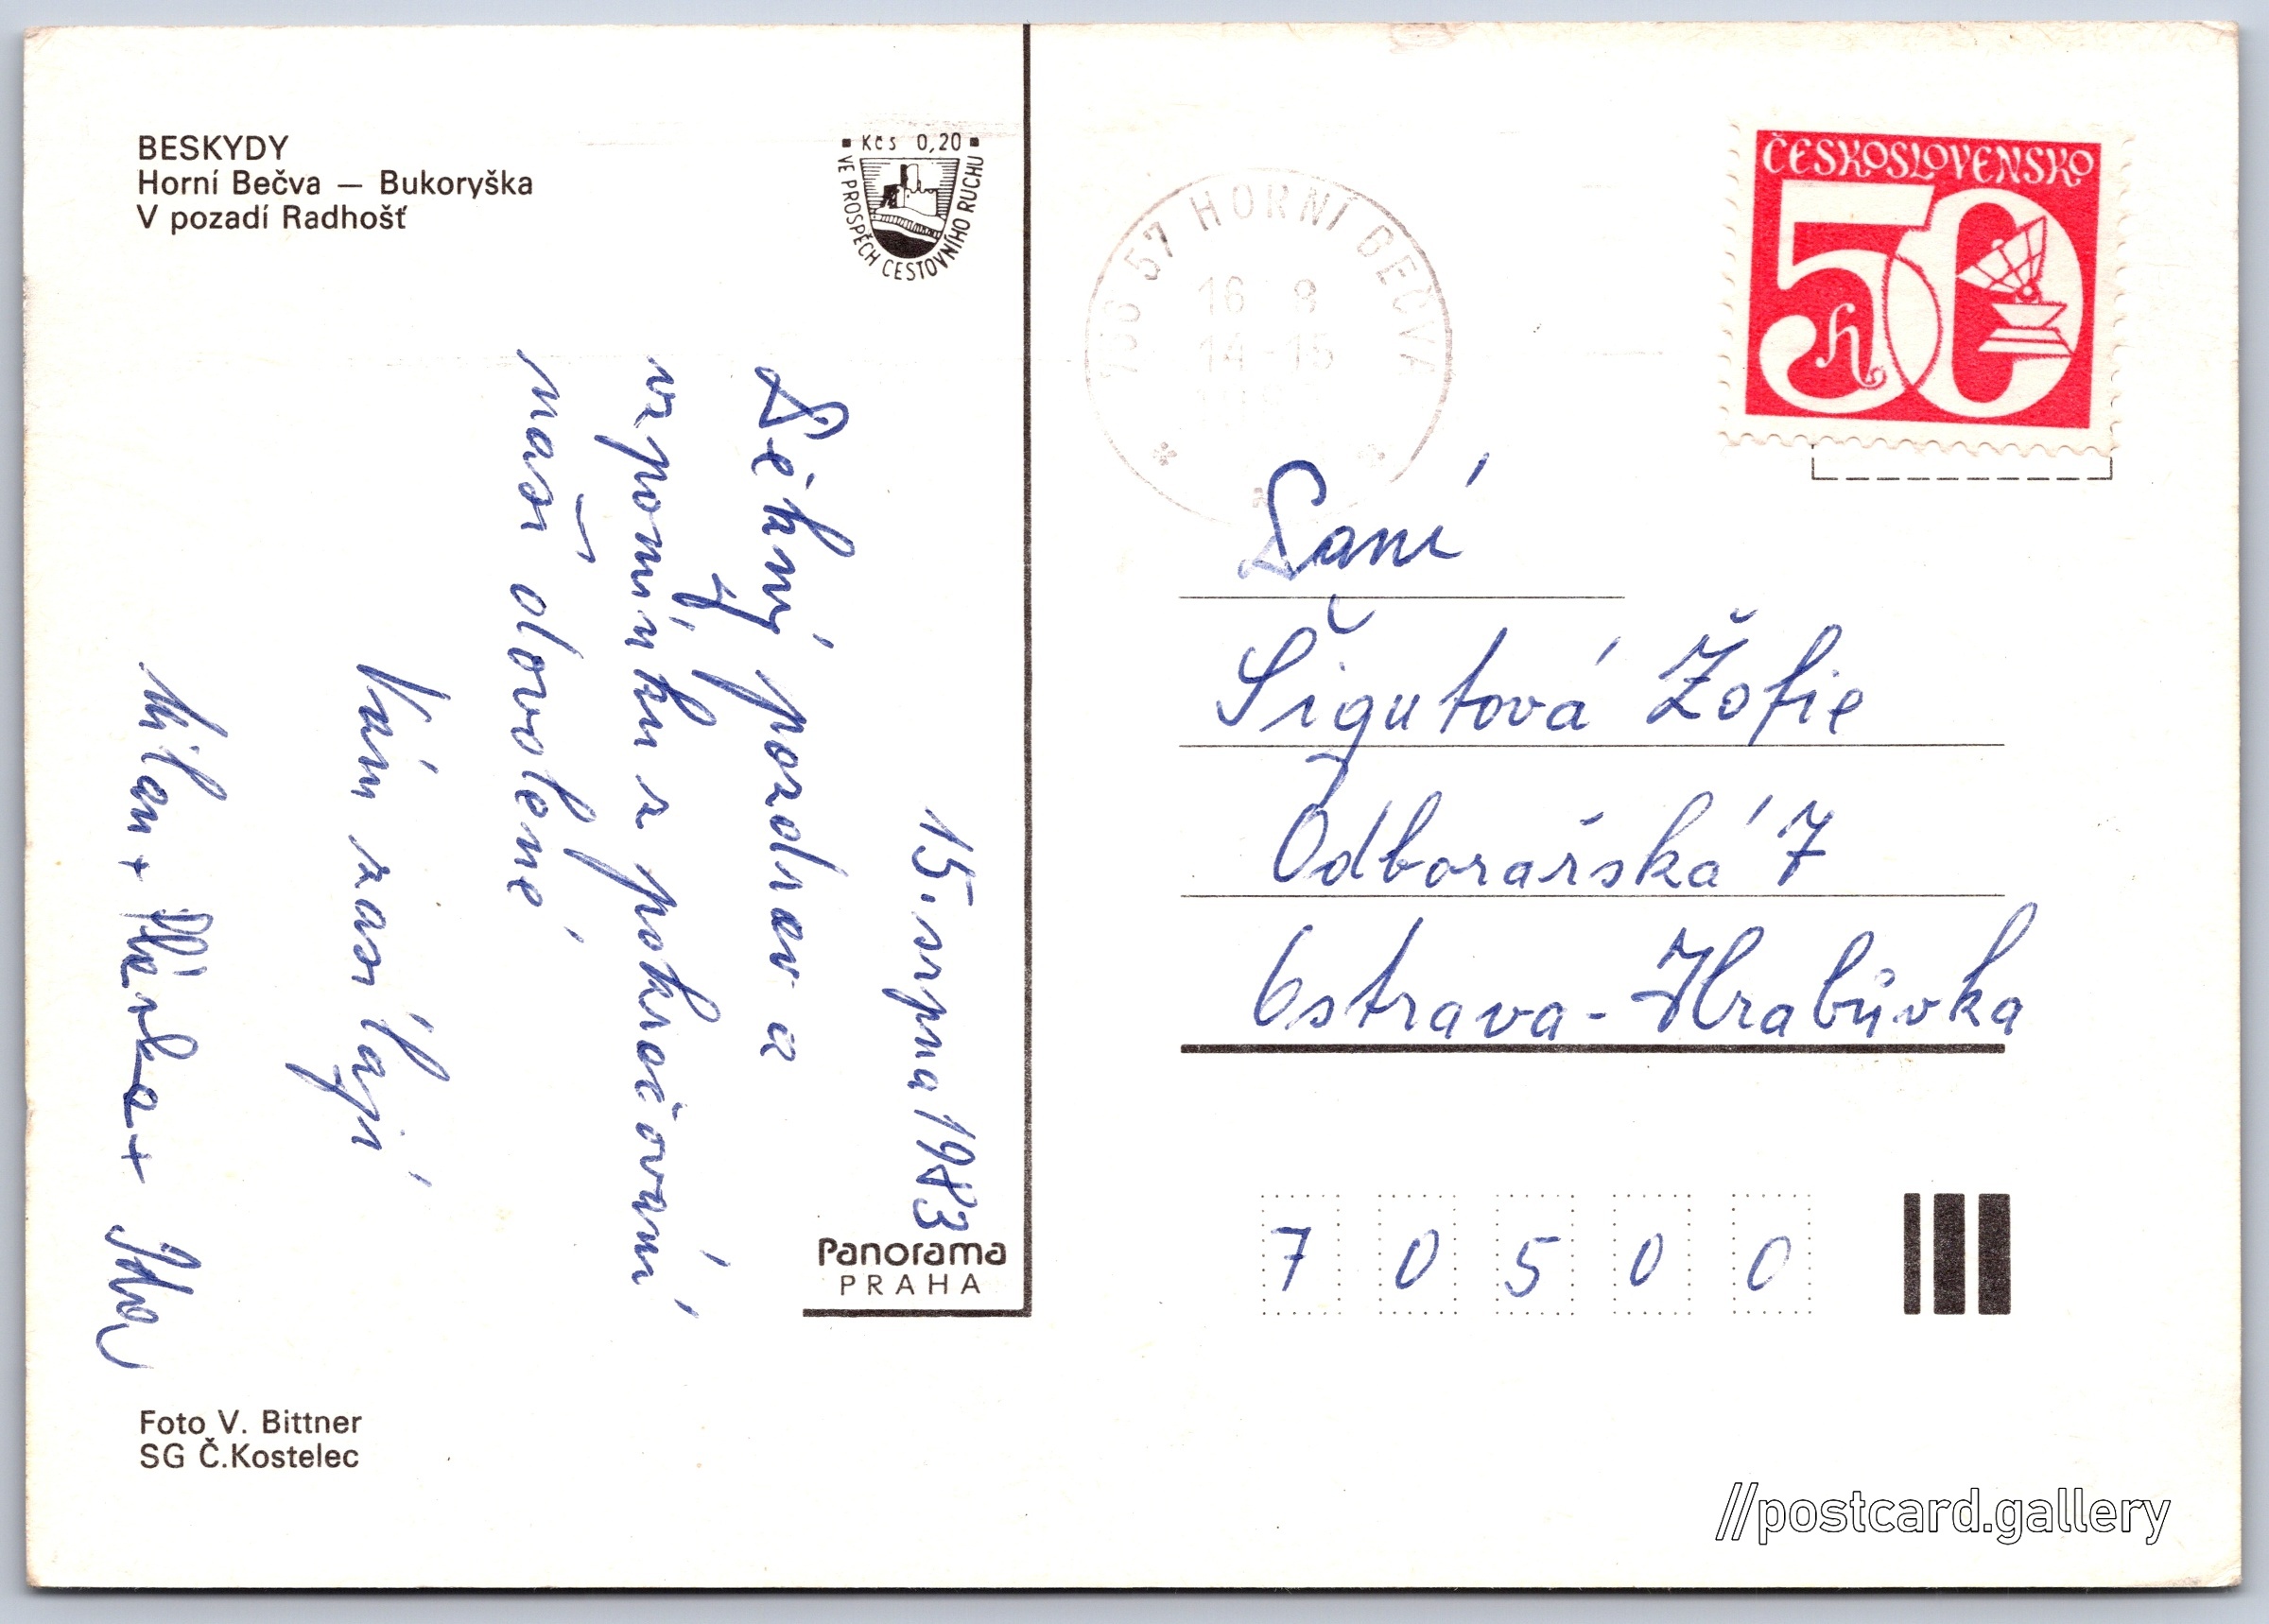 BESKYDY
Horní Bečva — Bukoryška
V pozadí Radhošť
Kčs 0,20
VE PROSPĚCH CESTOVNÍHO RUCHU
15. srpna 1983
Pěkný pozdrav a
vzpomínku z pokračování
naší dovolené
Vám zasílají
Milan + Mirka +
Panorama
PRAHA
Foto V. Bittner
SG Č.Kostelec
57 HORNÍ BEČVA
16 8
14-15
ČESKOSLOVENSKO
50 h
Paní
Šigutová Žofie
Odborářská 7
Ostrava-Hrabůvka
7 0 5 0 0
//postcard.gallery